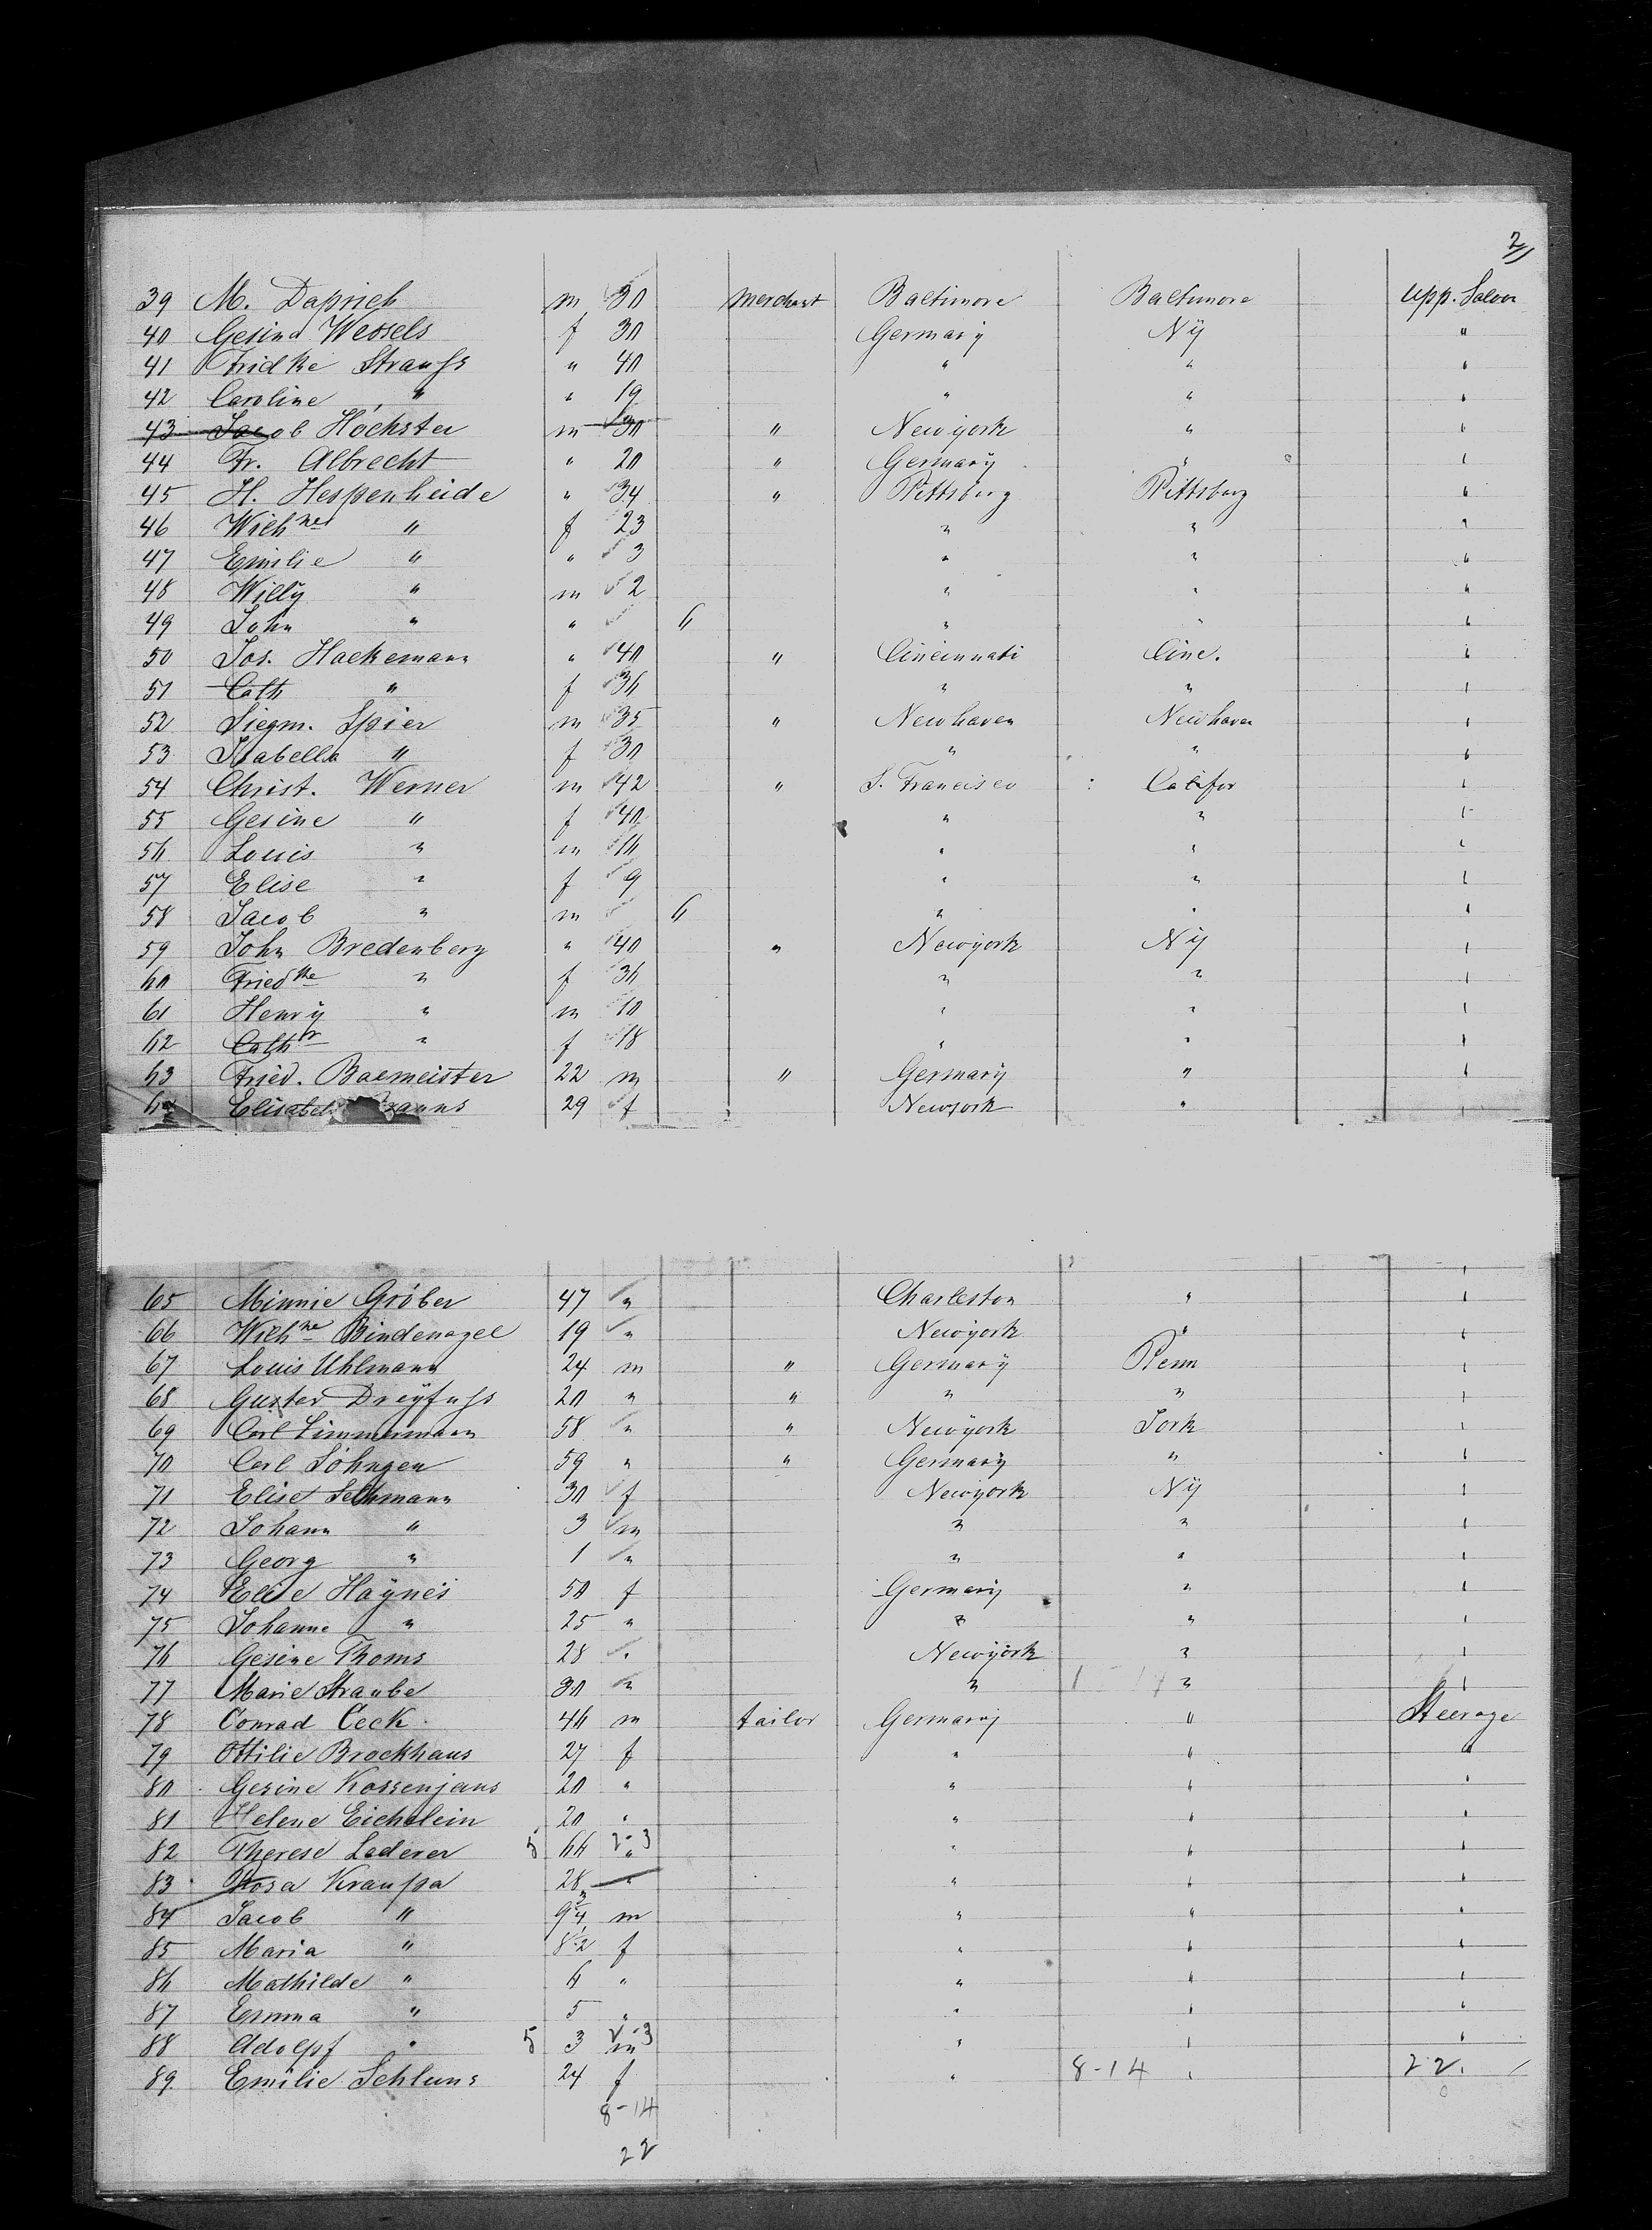 2/
39 M. Daprich m 30 merchant Baltimore Baltimore upp. Saloon
40 Gesina Wessels f 30 Germany Ny "
41 Fridke Strauss " 40 " " "
42 Caroline " " 19 " " "
43 Jacob Höchster m 30 " Newyork " "
44 Fr. Albrecht " 20 " Germany " "
45 H. Hespenheide " 34 " Pittsburg Pittsburg "
46 Wilhne " f 23 " " "
47 Emilie " " 3 " " "
48 Willy " m 2 " " "
49 John " " 6 " " "
50 Jos. Hackemann " 40 " Cincinnati Cinc. "
51 Cath " f 36 " " "
52 Siegm. Spier m 35 " Newhaven Newhaven "
53 Isabella " f 30 " " "
54 Christ. Werner m 42 " S. Francisco Califor "
55 Gesine " f 40 " " "
56 Louis " m 16 " " "
57 Elise " f 9 " " "
58 Jacob " m 6 " " "
59 John Bredenberg " 40 " Newyork Ny "
60 Friedke " f 36 " " "
61 Henry " m 10 " " "
62 Cath " f 18 " " "
63 Fried. Bacmeister 22 m " Germany " "
64 Elisabet 29 f Newyork " "
65 Minnie Gröber 47 " Charleston " "
66 Wilhne Bindenagel 19 " Newyork " "
67 Louis Uhlmann 24 m " Germany Penn "
68 Gustav Dreyfuss 20 " " " " "
69 Carl Zimmermann 58 " " Newyork York "
70 Carl Söhngen 59 " " Germany " "
71 Elise Sellmann 30 f Newyork Ny "
72 Johann " 3 m " " "
73 Georg " 1 " " " "
74 Elise Haynes 50 f Germany " "
75 Johanne " 25 " " " "
76 Gesine Thoms 28 " Newyork " "
77 Marie Straube 30 " " " "
78 Conrad Ceck 46 m tailor Germany " Steerage
79 Ottilie Brockhaus 27 f " " "
80 Gesine Kossenjans 20 " " " "
81 Helene Eichelein 20 " " " "
82 Therese Lederer 5 66 " " " "
83 Rosa Kraussa 28 " " " "
84 Jacob " 9 m " " "
85 Maria " 8 f " " "
86 Mathilde " 6 " " " "
87 Emma " 5 " " " "
88 Adolpf " 5 3 m " " "
89 Emilie Schluns 24 f " 8-14 " 22
8-14
22